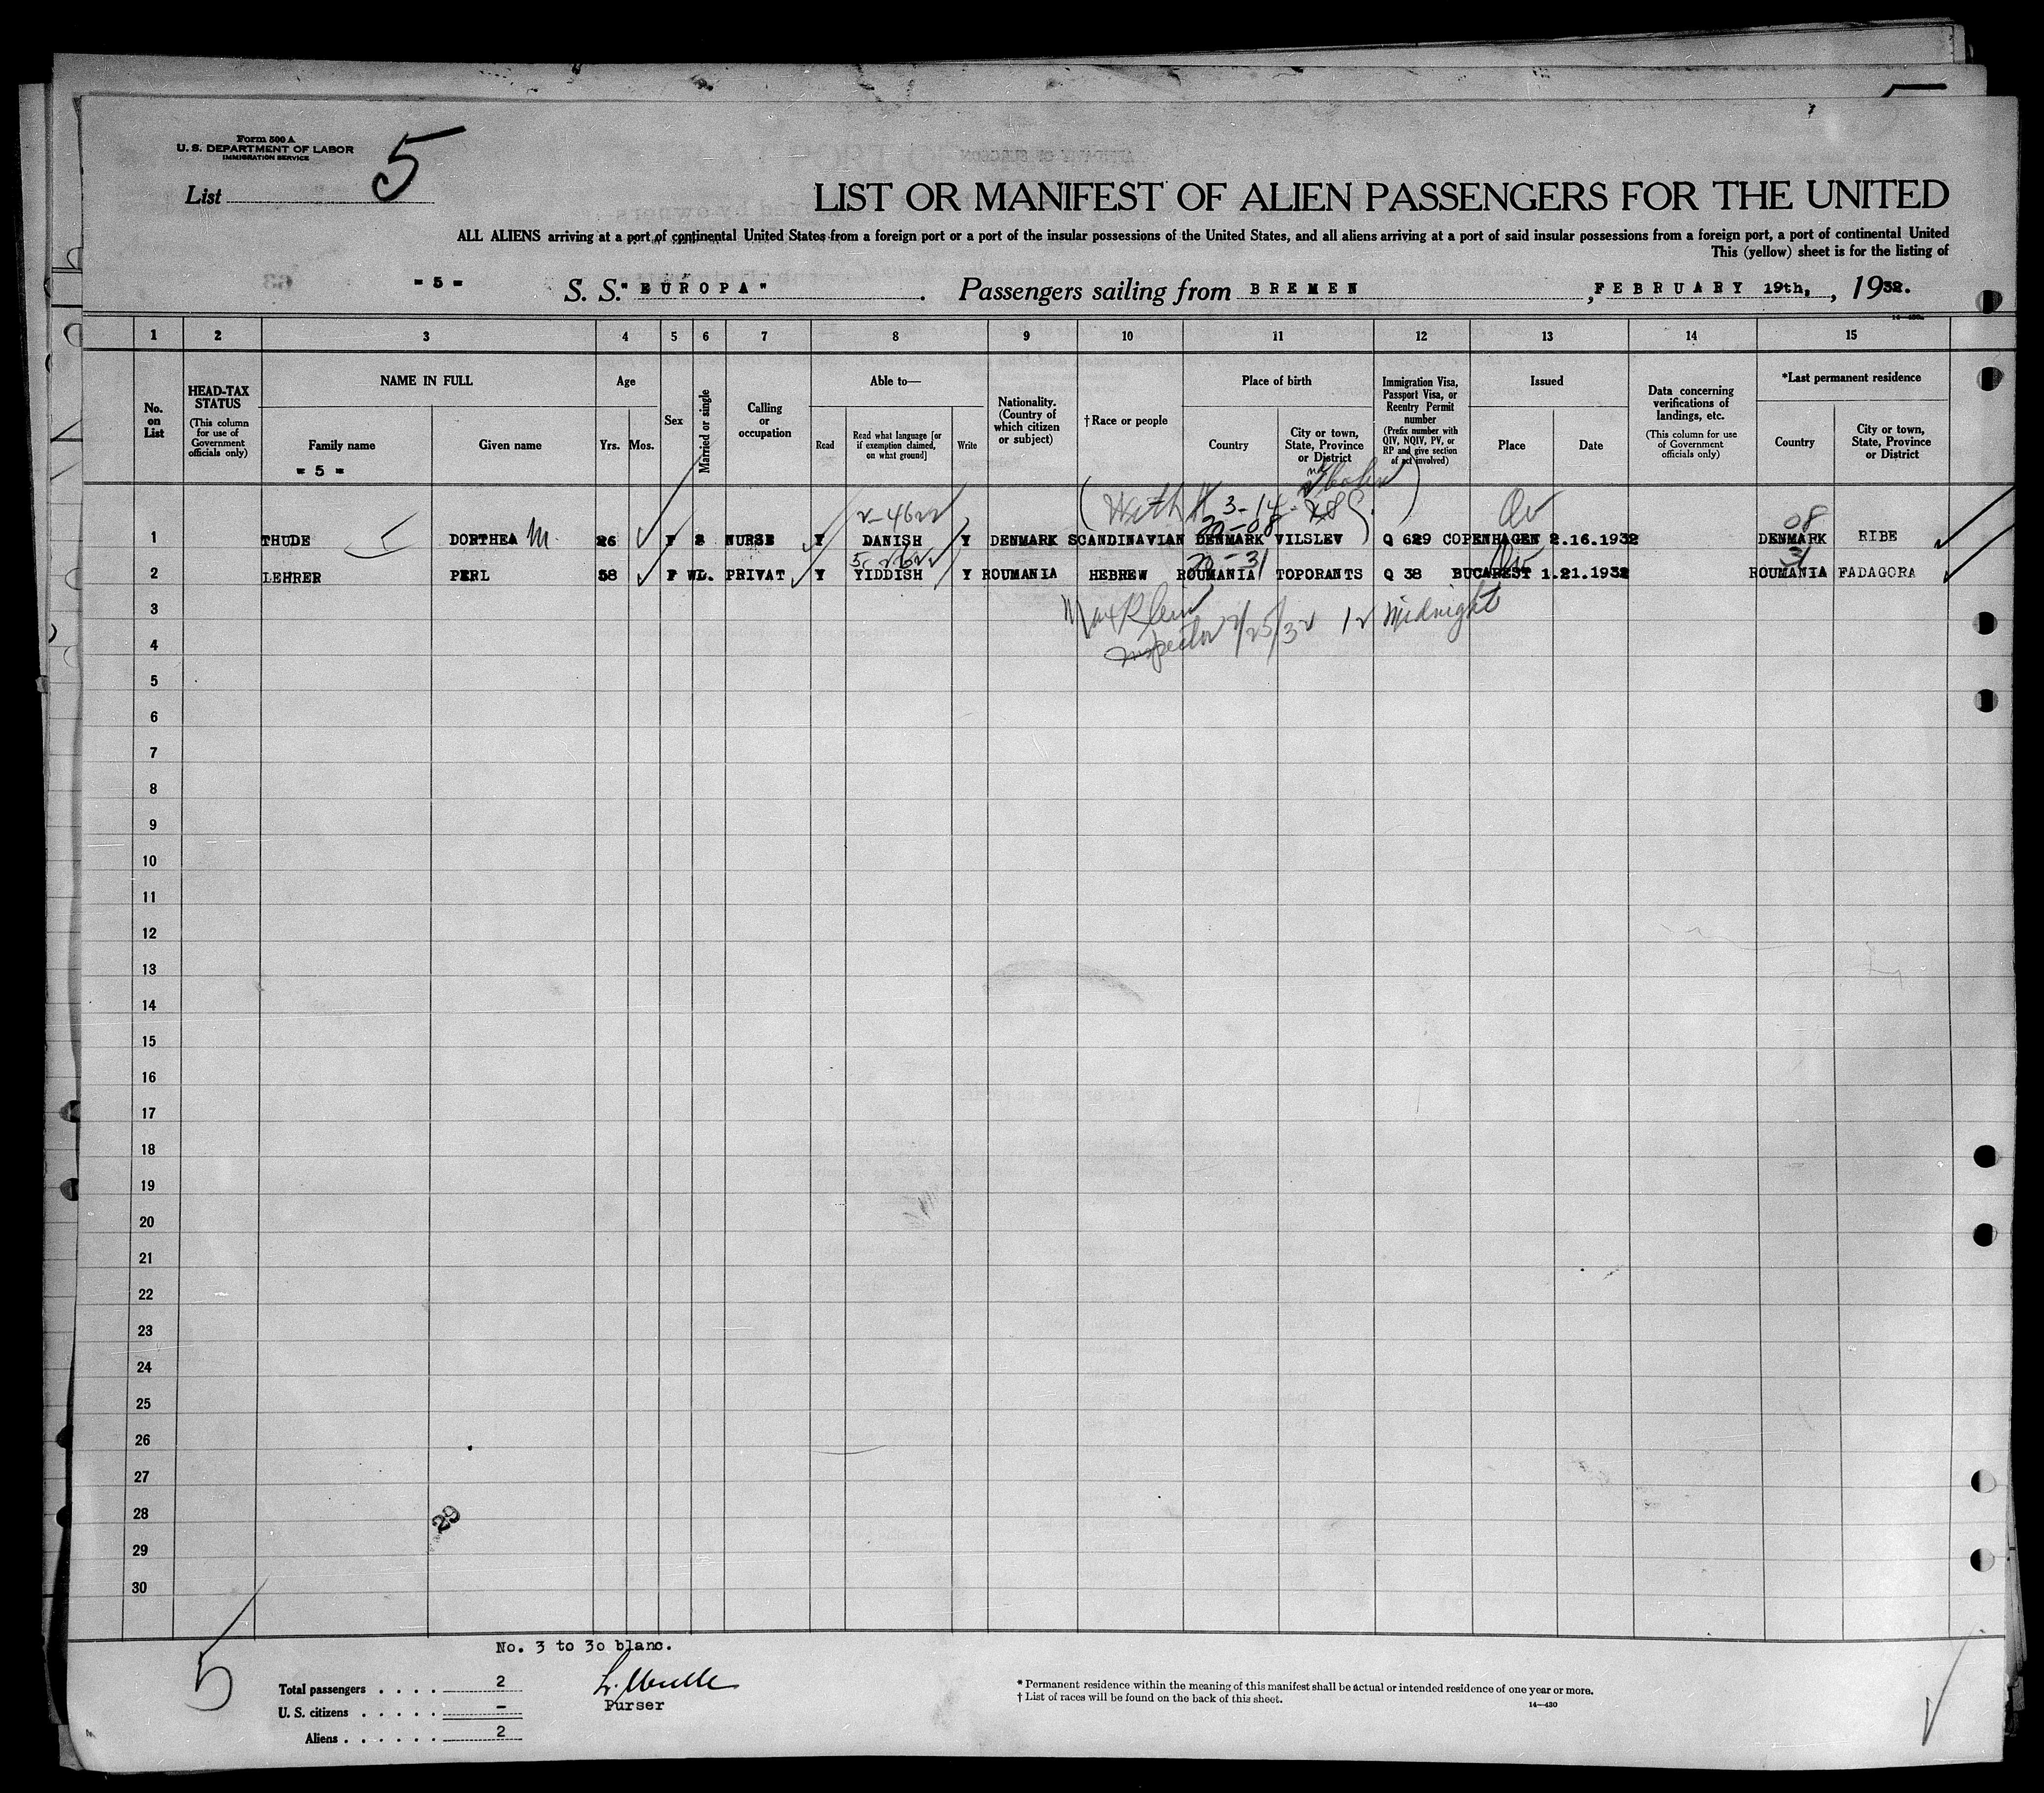 Form 500 A
U. S. DEPARTMENT OF LABOR
IMMIGRATION SERVICE
List 5
LIST OR MANIFEST OF ALIEN PASSENGERS FOR THE UNITED
ALL ALIENS arriving at a port of continental United States from a foreign port or a port of the insular possessions of the United States, and all aliens arriving at a port of said insular possessions from a foreign port, a port of continental United
This (yellow) sheet is for the listing of
- 5 - S. S. "EUROPA" . Passengers sailing from BREMEN , FEBRUARY 19th, , 1932.
14—430a
1 2 3 4 5 6 7 8 9 10 11 12 13 14 15
No. on List
HEAD-TAX STATUS
(This column for use of Government officials only)
NAME IN FULL
Family name
= 5 =
Given name
Age
Yrs. Mos.
Sex
Married or single
Calling or occupation
Able to—
Read
Read what language [or if exemption claimed, on what ground]
Write
Nationality. (Country of which citizen or subject)
† Race or people
Place of birth
Country
City or town, State, Province or District
Immigration Visa, Passport Visa, or Reentry Permit number
(Prefix number with QIV, NQIV, PV, or RP and give section of act involved)
Issued
Place
Date
Data concerning verifications of landings, etc.
(This column for use of Government officials only)
*Last permanent residence
Country
City or town, State, Province or District
With 3-14-
20-08
08
1 THUDE DORTHEA M. 26 F S NURSE Y DANISH Y DENMARK SCANDINAVIAN DENMARK VILSLEV Q 629 COPENHAGEN 2.16.1932 DENMARK RIBE
20-31
31
2 LEHRER PERL 58 F WL. PRIVAT Y YIDDISH Y ROUMANIA HEBREW ROUMANIA TOPORANTS Q 38 BUCAREST 1.21.1932 ROUMANIA FADAGORA
3
Max Klein
Inspector 2/25/32 12 Midnight
4
5
6
7
8
9
10
11
12
13
14
15
16
17
18
19
20
21
22
23
24
25
26
27
28
29
29
30
No. 3 to 30 blanc.
5
Total passengers . . . . 2
U. S. citizens . . . . . -
Aliens . . . . . . 2
Purser
* Permanent residence within the meaning of this manifest shall be actual or intended residence of one year or more.
† List of races will be found on the back of this sheet.
14—430